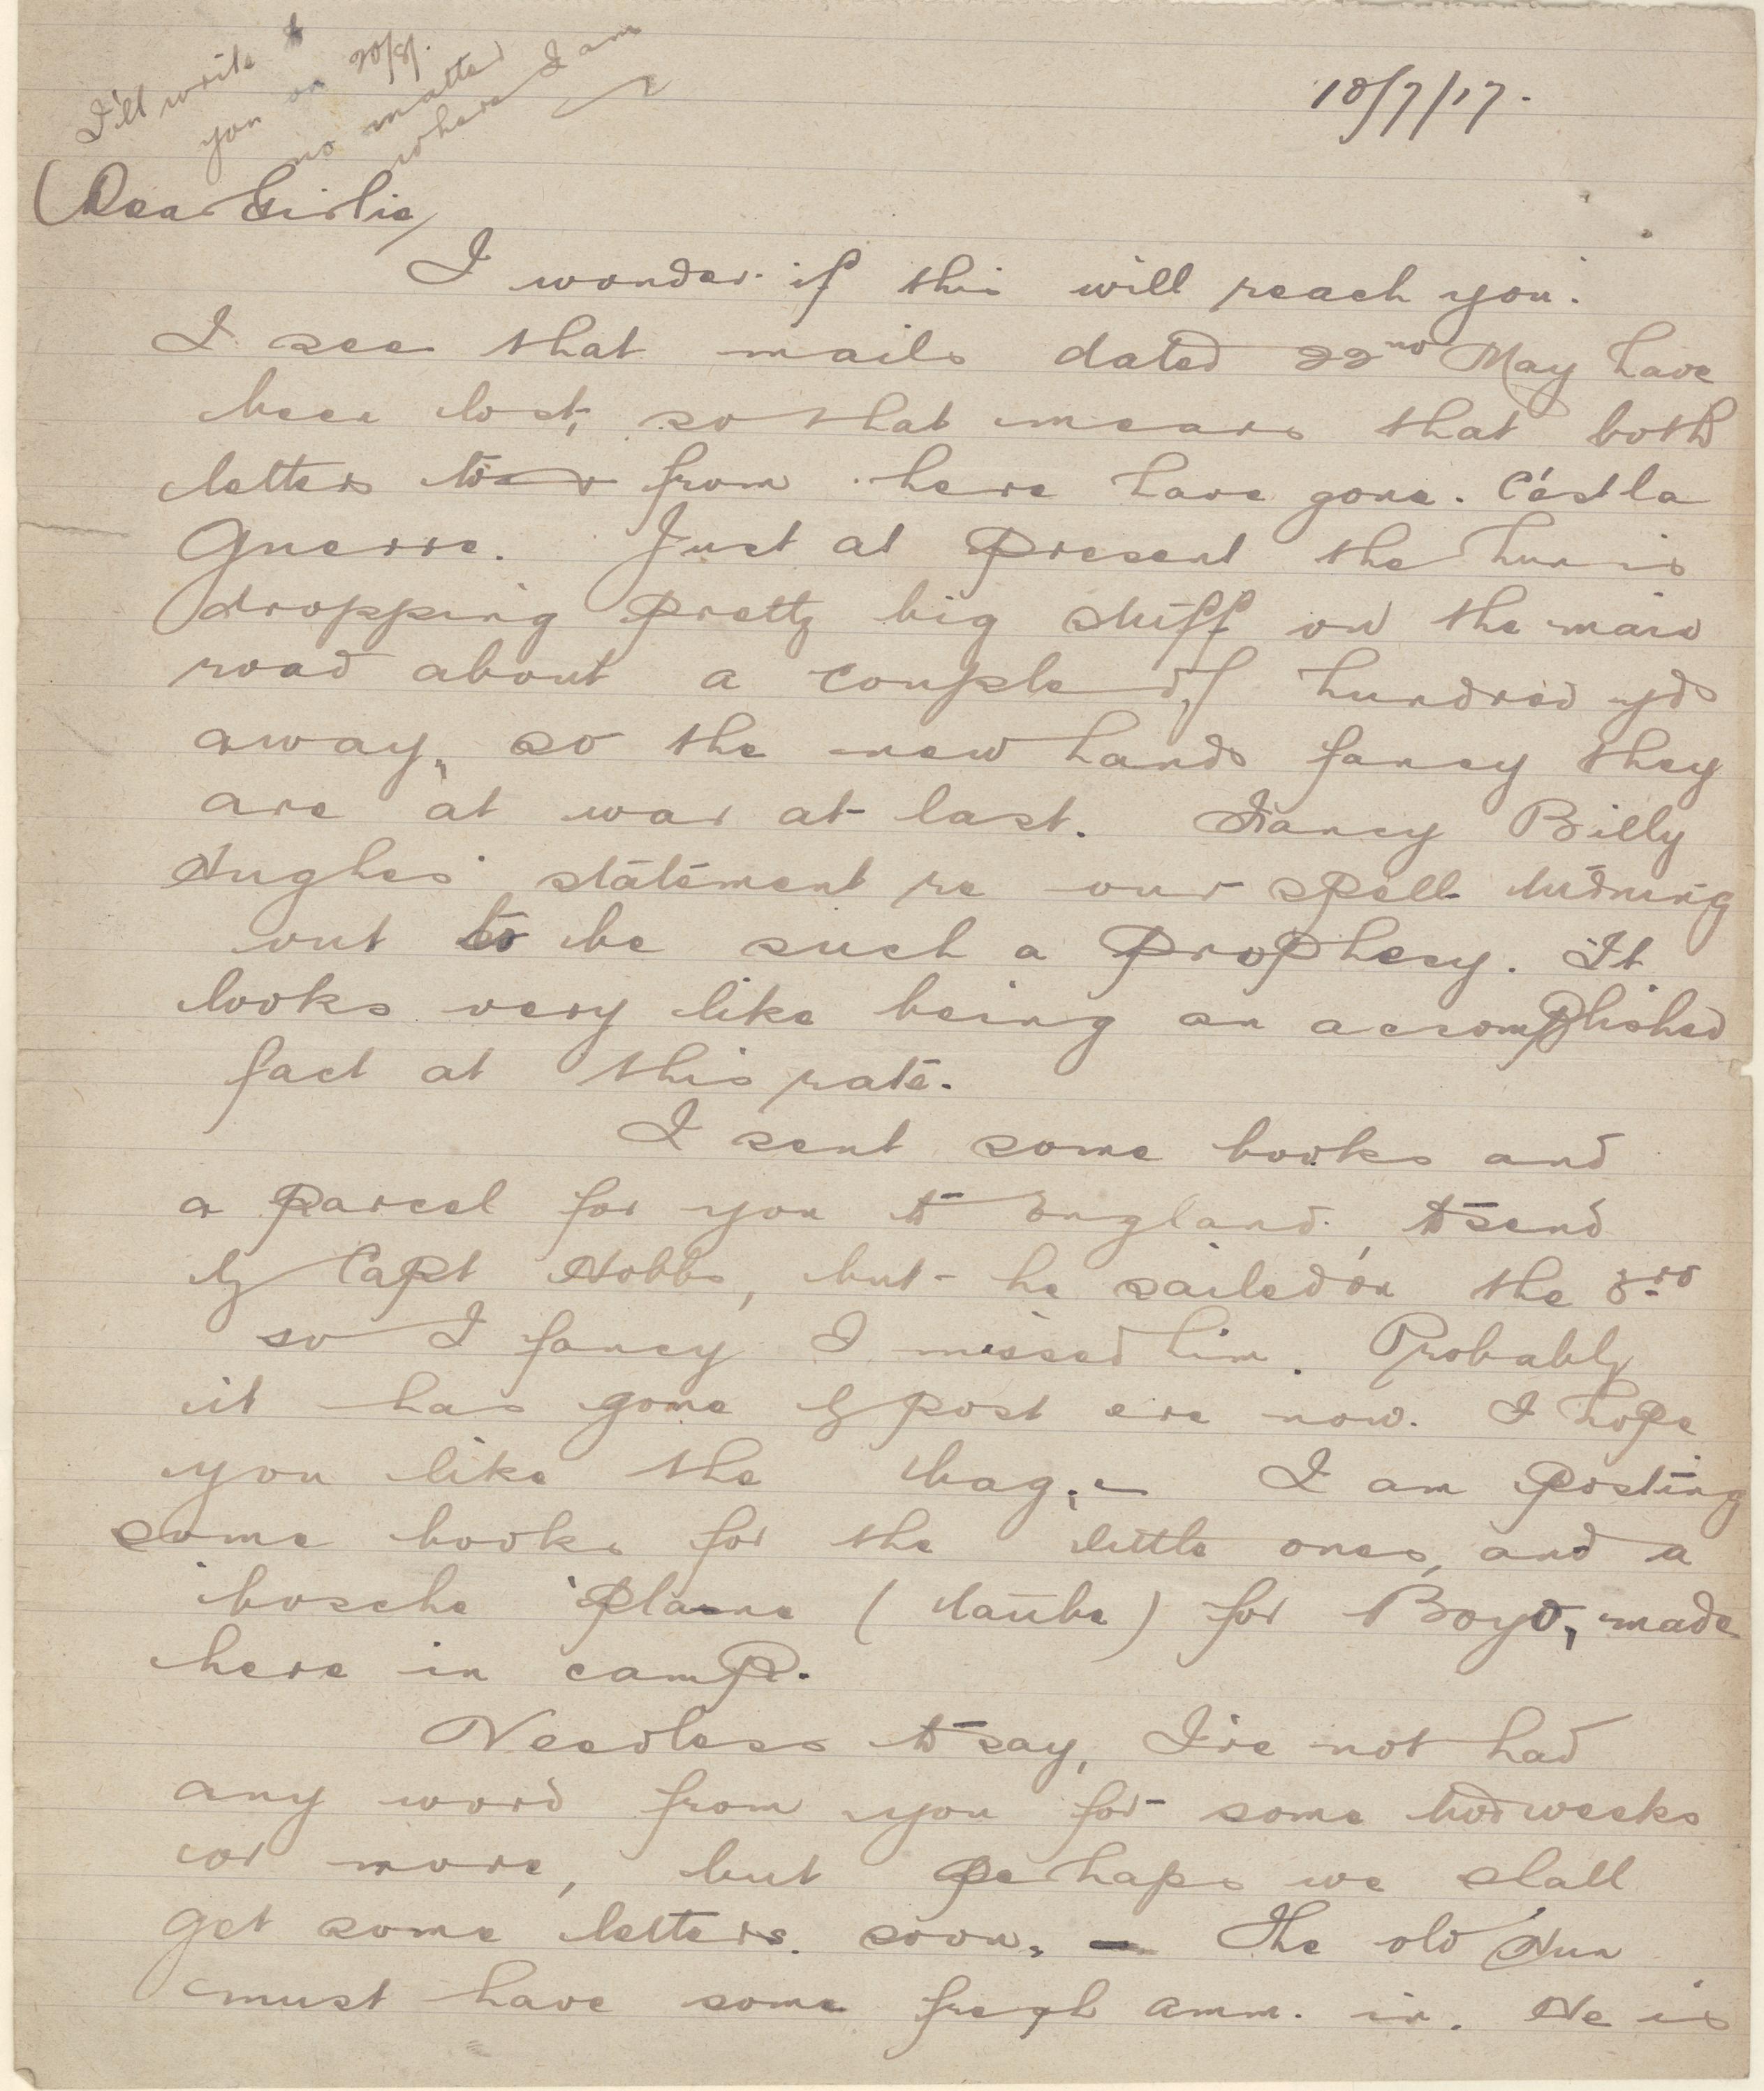 I'll write to
you on 20/8/.
no matter
where I am
18/7/17.
Dear Girlie,
I wonder if this will reach you.
I see that mails dated 22nd May have
been lost, so that means that both
letters to & from here have gone. C'est la
Guerre. Just at present the hun is
dropping pretty big stuff on the main
road about a couple of hundred yds
away, so the new hands fancy they
are at war at last. Fancy Billy
Hughes' statement re our spell turning
out to be such a prophecy. It
looks very like being an accomplished
fact at this rate.
I sent some books and
a parcel for you to England, to send
by Capt Hobbs, but he sailed on the 3rd
so I fancy I missed him. Probably
it has gone by post ere now. I hope
you like the bag. — I am posting
some books for the little ones, and a
bosche 'plane (taube) for Boyd, made
here in camp.
Needless to say, I've not had
any word from you for some two weeks
or more, but perhaps we shall
get some letters soon. — The old Hun
must have some fresh amm. in. He is